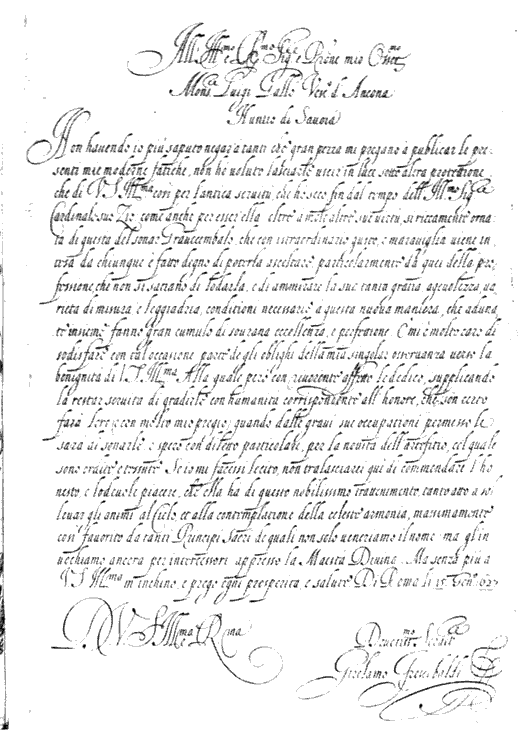 All' Ill.mo e R.mo Sig.re e Prõne mio Oss.mo
Mons.r Luigi Gallo Vesc.o d'Ancona
Nuntio di Savoia
Non havendo io più saputo negar a tanti che gran pezza mi pregano à publicar le pre=
senti mie moderne fatiche, non ho voluto lasciarle uscir in luce sott'altra protettione
che di V.S. Ill.ma così per l'antica servitù, che ho seco fin dal tempo dell'Ill.mo Sig.r
Cardinale suo Zio, come anche per esser ella, oltre a molte altre sue virtù, sì riccamente orna=
ta di questa del sonar Gravecembalo, che con istraordinario gusto, e maraviglia viene in=
tesa da chiunque è fatto degno di poterla ascoltare particolarmente da quei della pro=
fessione, che non si satiano di lodarla, e di ammirare la sua tanta gratia agevolezza, va=
rietà di misura e leggiadria, conditioni necessarie a questa nuova maniera, che aduna=
te insieme fanno gran cumulo di sovrana eccellenza, e perfetione. E mi è molto caro di
sodisfare con tal occasione parte degli oblighi della mia singolar osservanza verso la
benignità di V.S. Ill.ma Alla quale però con riverente affetto le dedico, supplicando
la restar servita di gradirle con humanità corrispondente all'honore, che son certo
farà loro, e con molto mio pregio, quando dalle gravi sue occupationi permesso le
sarà di sonarle e spero con diletto particolare, per la novità dell'artifitio, col quale
sono ordite e tessute Se io mi facessi lecito, non tralasciarei qui di commendare l'ho=
nesto, e lodevole piacere, che Ella ha di questo nobilissimo trattenimento, tanto atto a sol=
levar gli animi al Cielo, et alla contemplatione della celeste armonia, massimamente
così favorito da tanti Principi Sacri de quali non solo veneriamo il nome ma gli in
vochiamo ancora per intercessori appresso la Maestà Divina. Ma senza più a
V.S. Ill.ma m'inchino, e prego ogni prosperità, e salute Di Roma li
D. V.S. Ill.ma e R.ma
Devotiss.mo Servit.re
Girolamo Frescobaldi